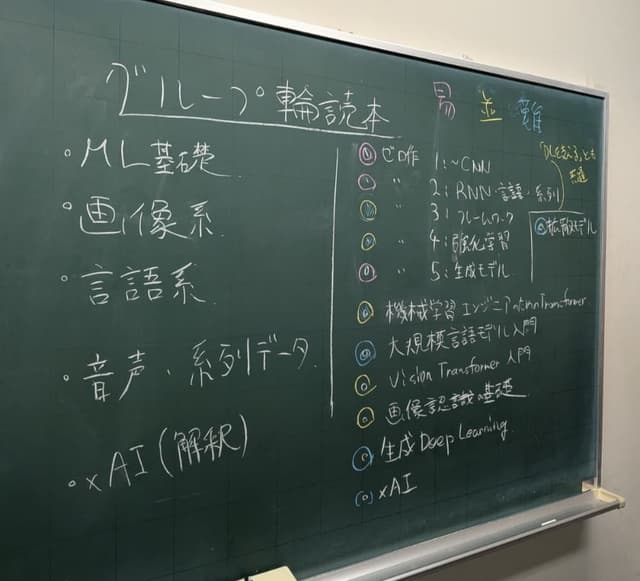 グループ輪読本
易 並 難
・ML基礎
・画像系
・言語系
・音声・系列データ
・xAI(解釈)
ゼロ作 1:~CNN
〃 2:RNN・言語・系列
〃 3:フレームワーク
〃 4:強化学習
〃 5:生成モデル
拡散モデル
機械学習エンジニアのためのTransformer
大規模言語モデル入門
Vision Transformer入門
画像認識の基礎
生成Deep Learning
xAI